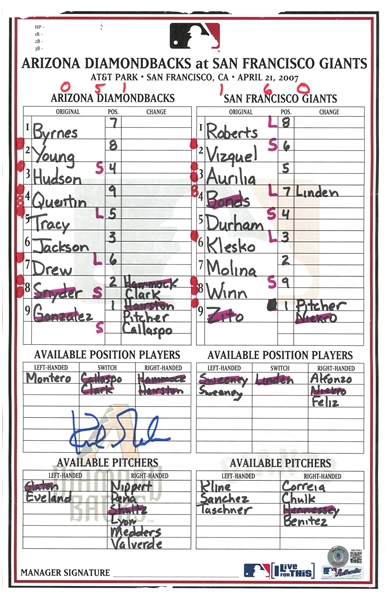 HP -
1B -
2B -
3B -
ARIZONA DIAMONDBACKS at SAN FRANCISCO GIANTS
AT&T PARK • SAN FRANCISCO, CA • APRIL 21, 2007
0 5 1 1 6 0
ARIZONA DIAMONDBACKS SAN FRANCISCO GIANTS
ORIGINAL POS. CHANGE ORIGINAL POS. CHANGE
1 Byrnes 7 1 Roberts L 8
2 Young 8 2 Vizquel S 6
3 Hudson S 4 3 Aurilia 5
4 Quentin 9 4 Bonds L 7 Linden
5 Tracy L 5 5 Durham S 4
6 Jackson 3 6 Klesko L 3
7 Drew L 6 7 Molina 2
8 Snyder S 2 Hammock 8 Winn S 9
Clark
9 Gonzalez 1 Hairston 9 Zito 1 Pitcher
S Pitcher Niekro
Callaspo
AVAILABLE POSITION PLAYERS AVAILABLE POSITION PLAYERS
LEFT-HANDED SWITCH RIGHT-HANDED LEFT-HANDED SWITCH RIGHT-HANDED
Montero Callaspo Hammock Sweeney Linden Alfonzo
Clark Hairston Sweeney Niekro
Feliz
AVAILABLE PITCHERS AVAILABLE PITCHERS
LEFT-HANDED RIGHT-HANDED LEFT-HANDED RIGHT-HANDED
Slaten Nippert Kline Correia
Eveland Pena Sanchez Chulk
Shultz Taschner Hennessey
Lyon Benitez
Medders
Valverde
MANAGER SIGNATURE
I Live for THIS
Authentic